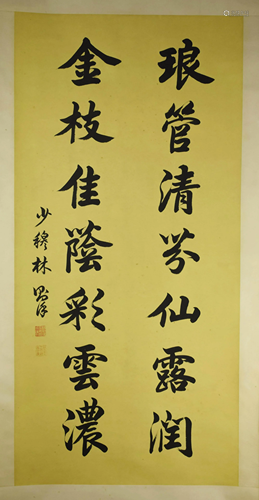 琅管清芬仙露润
金枝佳蔭彩雲濃
少穆林則徐